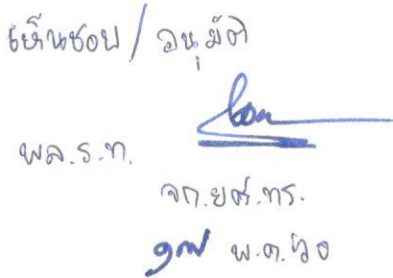 เห็นชอบ / อนุมัติ
พล.ร.ท.
จก.ยศ.ทร.
๑๗ พ.ค.๖๐